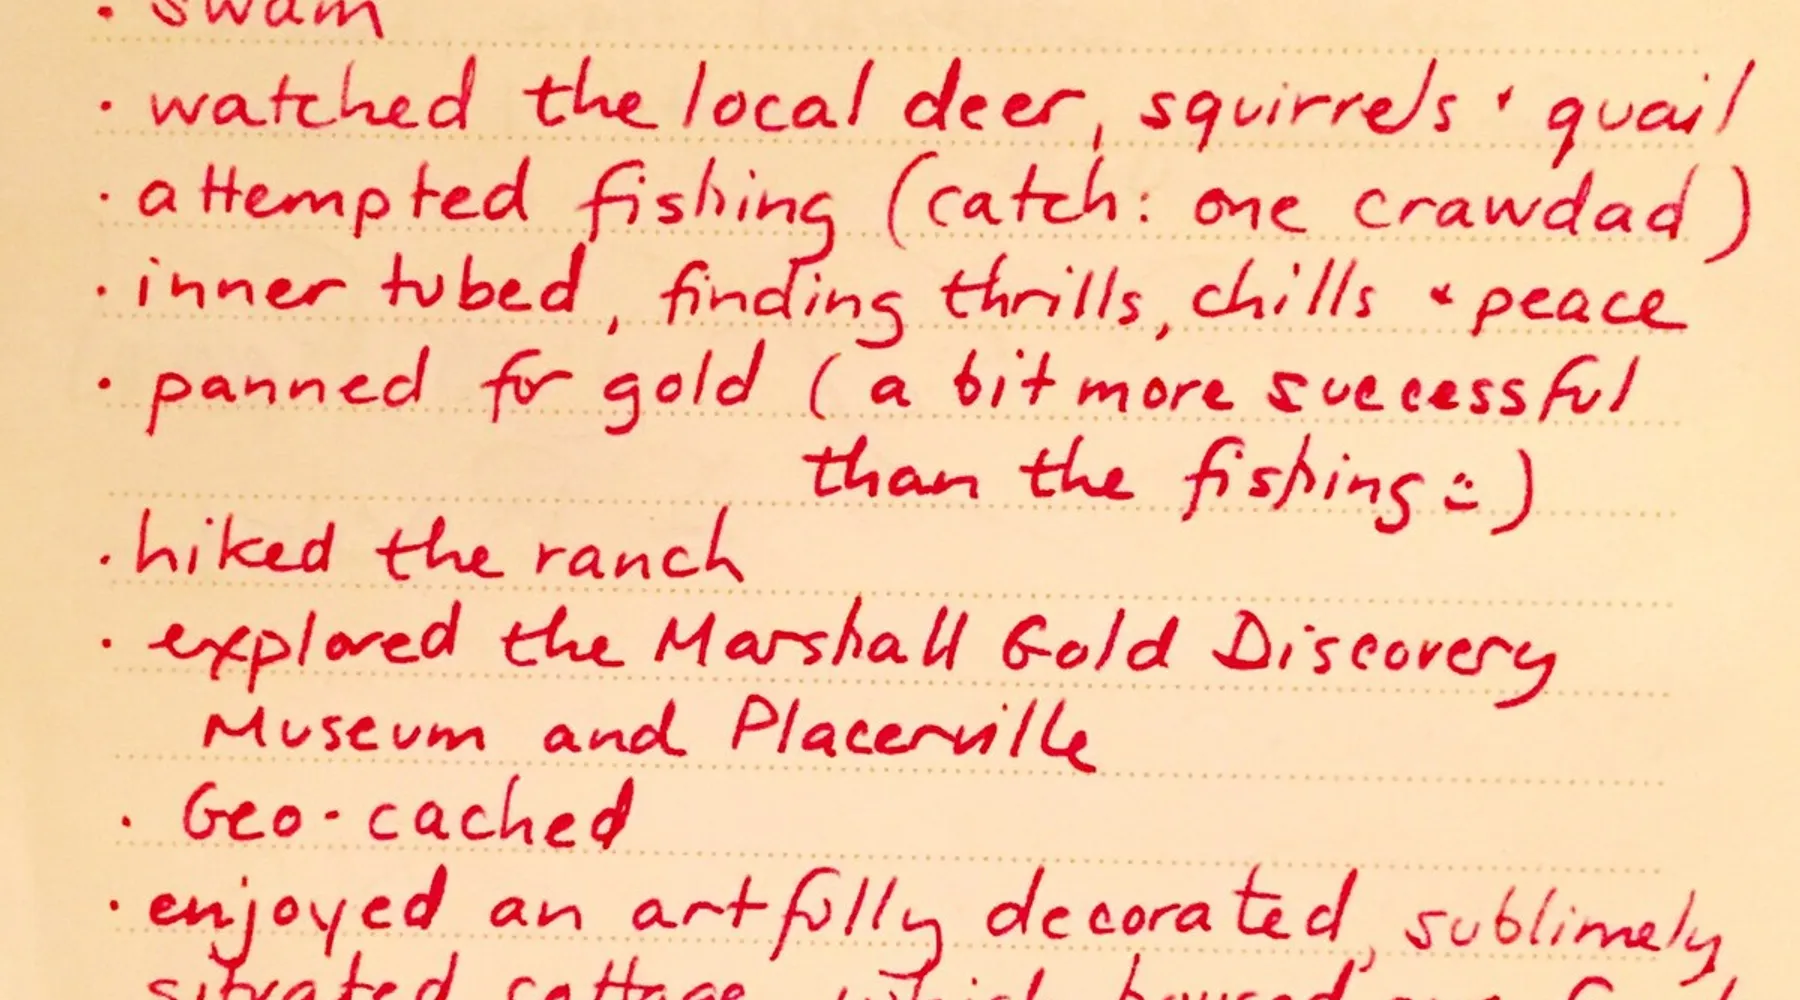 · swam
· watched the local deer, squirrels + quail
· attempted fishing (catch: one crawdad)
· inner tubed, finding thrills, chills + peace
· panned for gold (a bit more successful
than the fishing :))
· hiked the ranch
· explored the Marshall Gold Discovery
Museum and Placerville
· Geo-cached
· enjoyed an artfully decorated, sublimely
situated cottage, which housed our